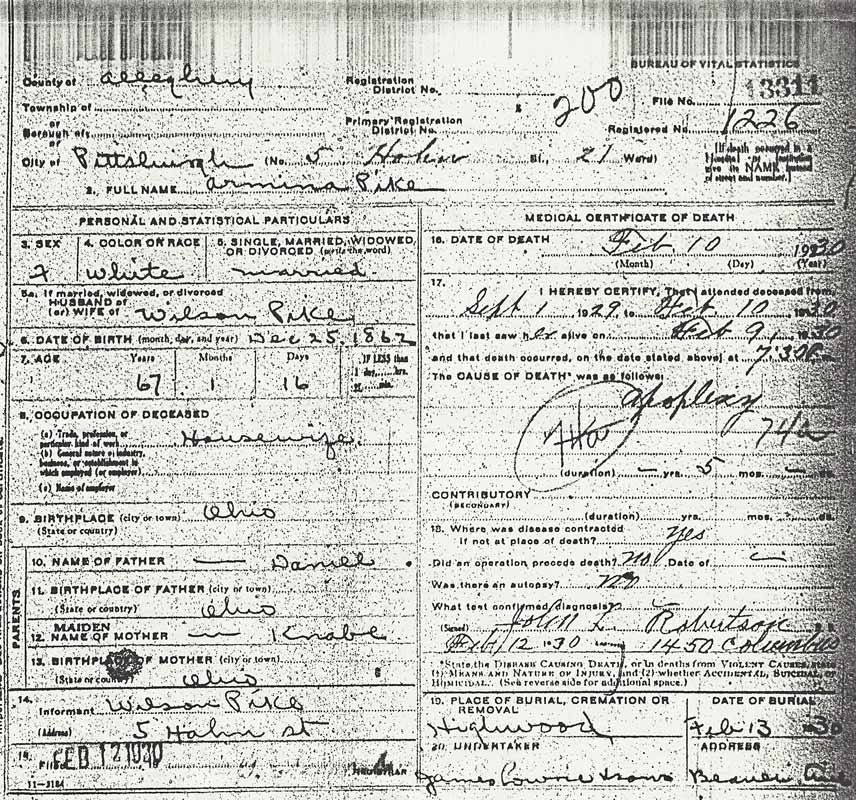 PLACE OF DEATH
BUREAU OF VITAL STATISTICS
County of Allegheny
Registration District No.
File No. 13311
Township of
200
or Borough of
Primary Registration District No.
Registered No. 1226
or City of Pittsburgh (No. 5 Hahn St., 21 Ward)
[If death occurred in a Hospital or Institution give its NAME instead of street and number.]
2. FULL NAME Armina Pike
PERSONAL AND STATISTICAL PARTICULARS
3. SEX
4. COLOR OR RACE
5. SINGLE, MARRIED, WIDOWED, OR DIVORCED (write the word)
F
White
married
5a. If married, widowed, or divorced
HUSBAND of
(or) WIFE of Wilson Pike
6. DATE OF BIRTH (month, day, and year) Dec 25, 1862
7. AGE Years Months Days IF LESS than
1 day, hrs.
67 1 16
min.
8. OCCUPATION OF DECEASED
(a) Trade, profession, or particular kind of work Housewife
(b) General nature of industry, business, or establishment in which employed (or employer)
(c) Name of employer
9. BIRTHPLACE (city or town) Ohio
(State or country)
PARENTS
10. NAME OF FATHER — Daniel
11. BIRTHPLACE OF FATHER (city or town)
(State or country) Ohio
12. MAIDEN NAME OF MOTHER — Knabe
13. BIRTHPLACE OF MOTHER (city or town)
(State or country) Ohio
14. Informant Wilson Pike
(Address) 5 Hahn St
15. Filed FEB 12 1930
REGISTRAR
11-3184
MEDICAL CERTIFICATE OF DEATH
16. DATE OF DEATH Feb. 10 1930
(Month) (Day) (Year)
17. I HEREBY CERTIFY, That I attended deceased from
Sept 1 1929 to Feb. 10 1930
that I last saw her alive on Feb 9, 1930
and that death occurred, on the date stated above, at 7:30
The CAUSE OF DEATH* was as follows:
Apoplexy
74a
74a
(duration) — yrs. 5 mos. — ds.
CONTRIBUTORY
(SECONDARY)
(duration) yrs. mos. ds.
18. Where was disease contracted
if not at place of death? yes
Did an operation precede death? no Date of —
Was there an autopsy? no
What test confirmed diagnosis?
(Signed) John L. Robertson M. D.
Feb/12 1930 1450 Columbus
*State the DISEASE CAUSING DEATH, or in deaths from VIOLENT CAUSES, state
(1) MEANS AND NATURE OF INJURY, and (2) whether ACCIDENTAL, SUICIDAL, or
HOMICIDAL. (See reverse side for additional space.)
19. PLACE OF BURIAL, CREMATION OR REMOVAL
DATE OF BURIAL
Highwood
Feb 13 30
20. UNDERTAKER
ADDRESS
James Lowrie & Sons
Beaver Ave